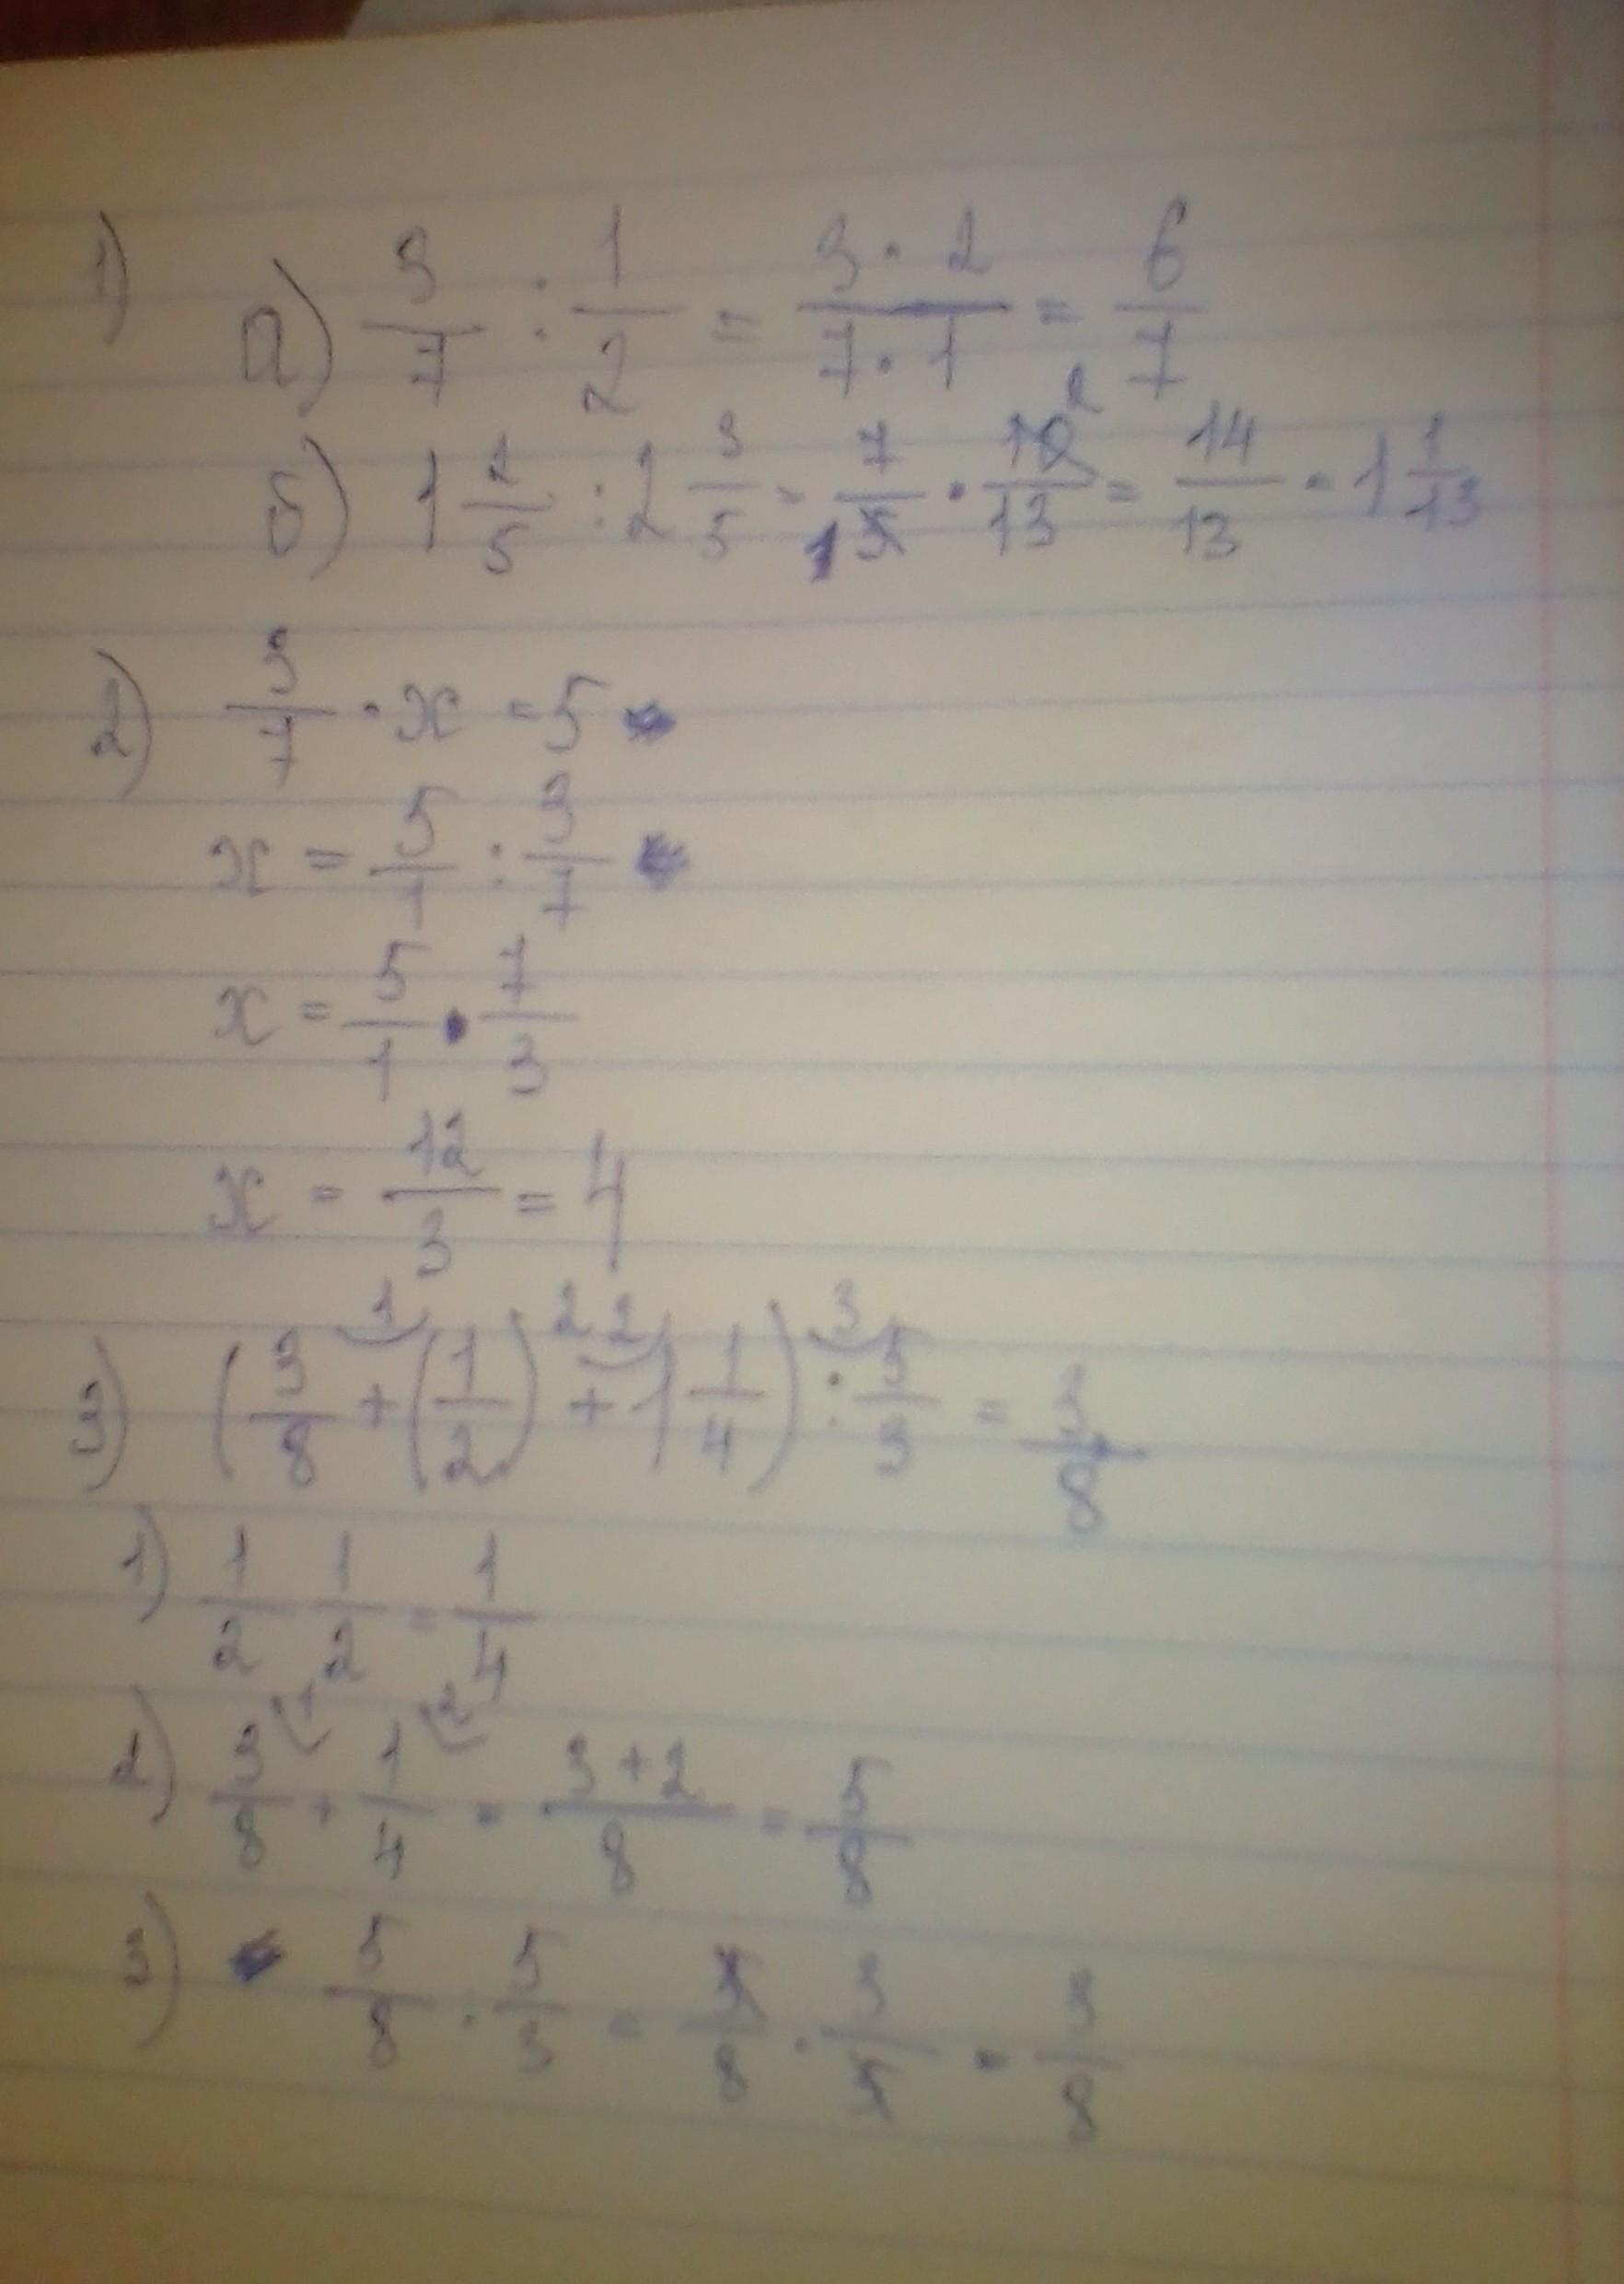 1) а) 3/7 : 1/2 = 3·2/7·1 = 6/7
б) 1 2/5 : 2 3/5 = 7/5 · 10/13 = 14/13 = 1 1/13
2) 3/7 · x = 5
x = 5/1 : 3/7
x = 5/1 · 7/3
x = 12/3 = 4
3) (3/8 + (1/2)² + 1 1/4) : 5/3 = 3/8
1) 1/2 1/2 = 1/4
2) 3/8 + 1/4 = 3+2/8 = 5/8
3) 5/8 · 5/3 = 5/8 · 3/5 = 3/8